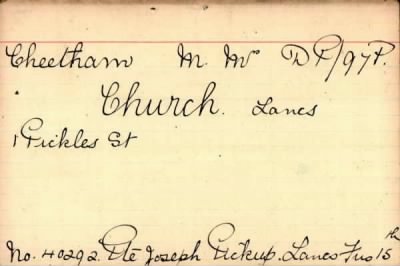 Cheetham M. Mrs DP/97P.
Church. Lancs
1 Pickles St
No. 40292. Pte Joseph Pickup. Lancs Fus 15th